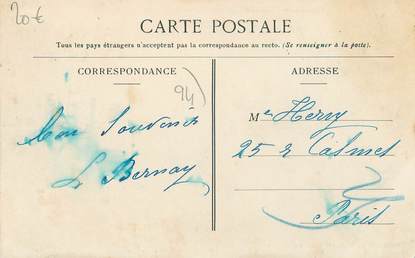 20€
CARTE POSTALE
Tous les pays étrangers n'acceptent pas la correspondance au recto. (Se renseigner à la poste).
CORRESPONDANCE
ADRESSE
94)
Bon Souvenir
L Bernay
Me Herry
25 r Calmel
Paris